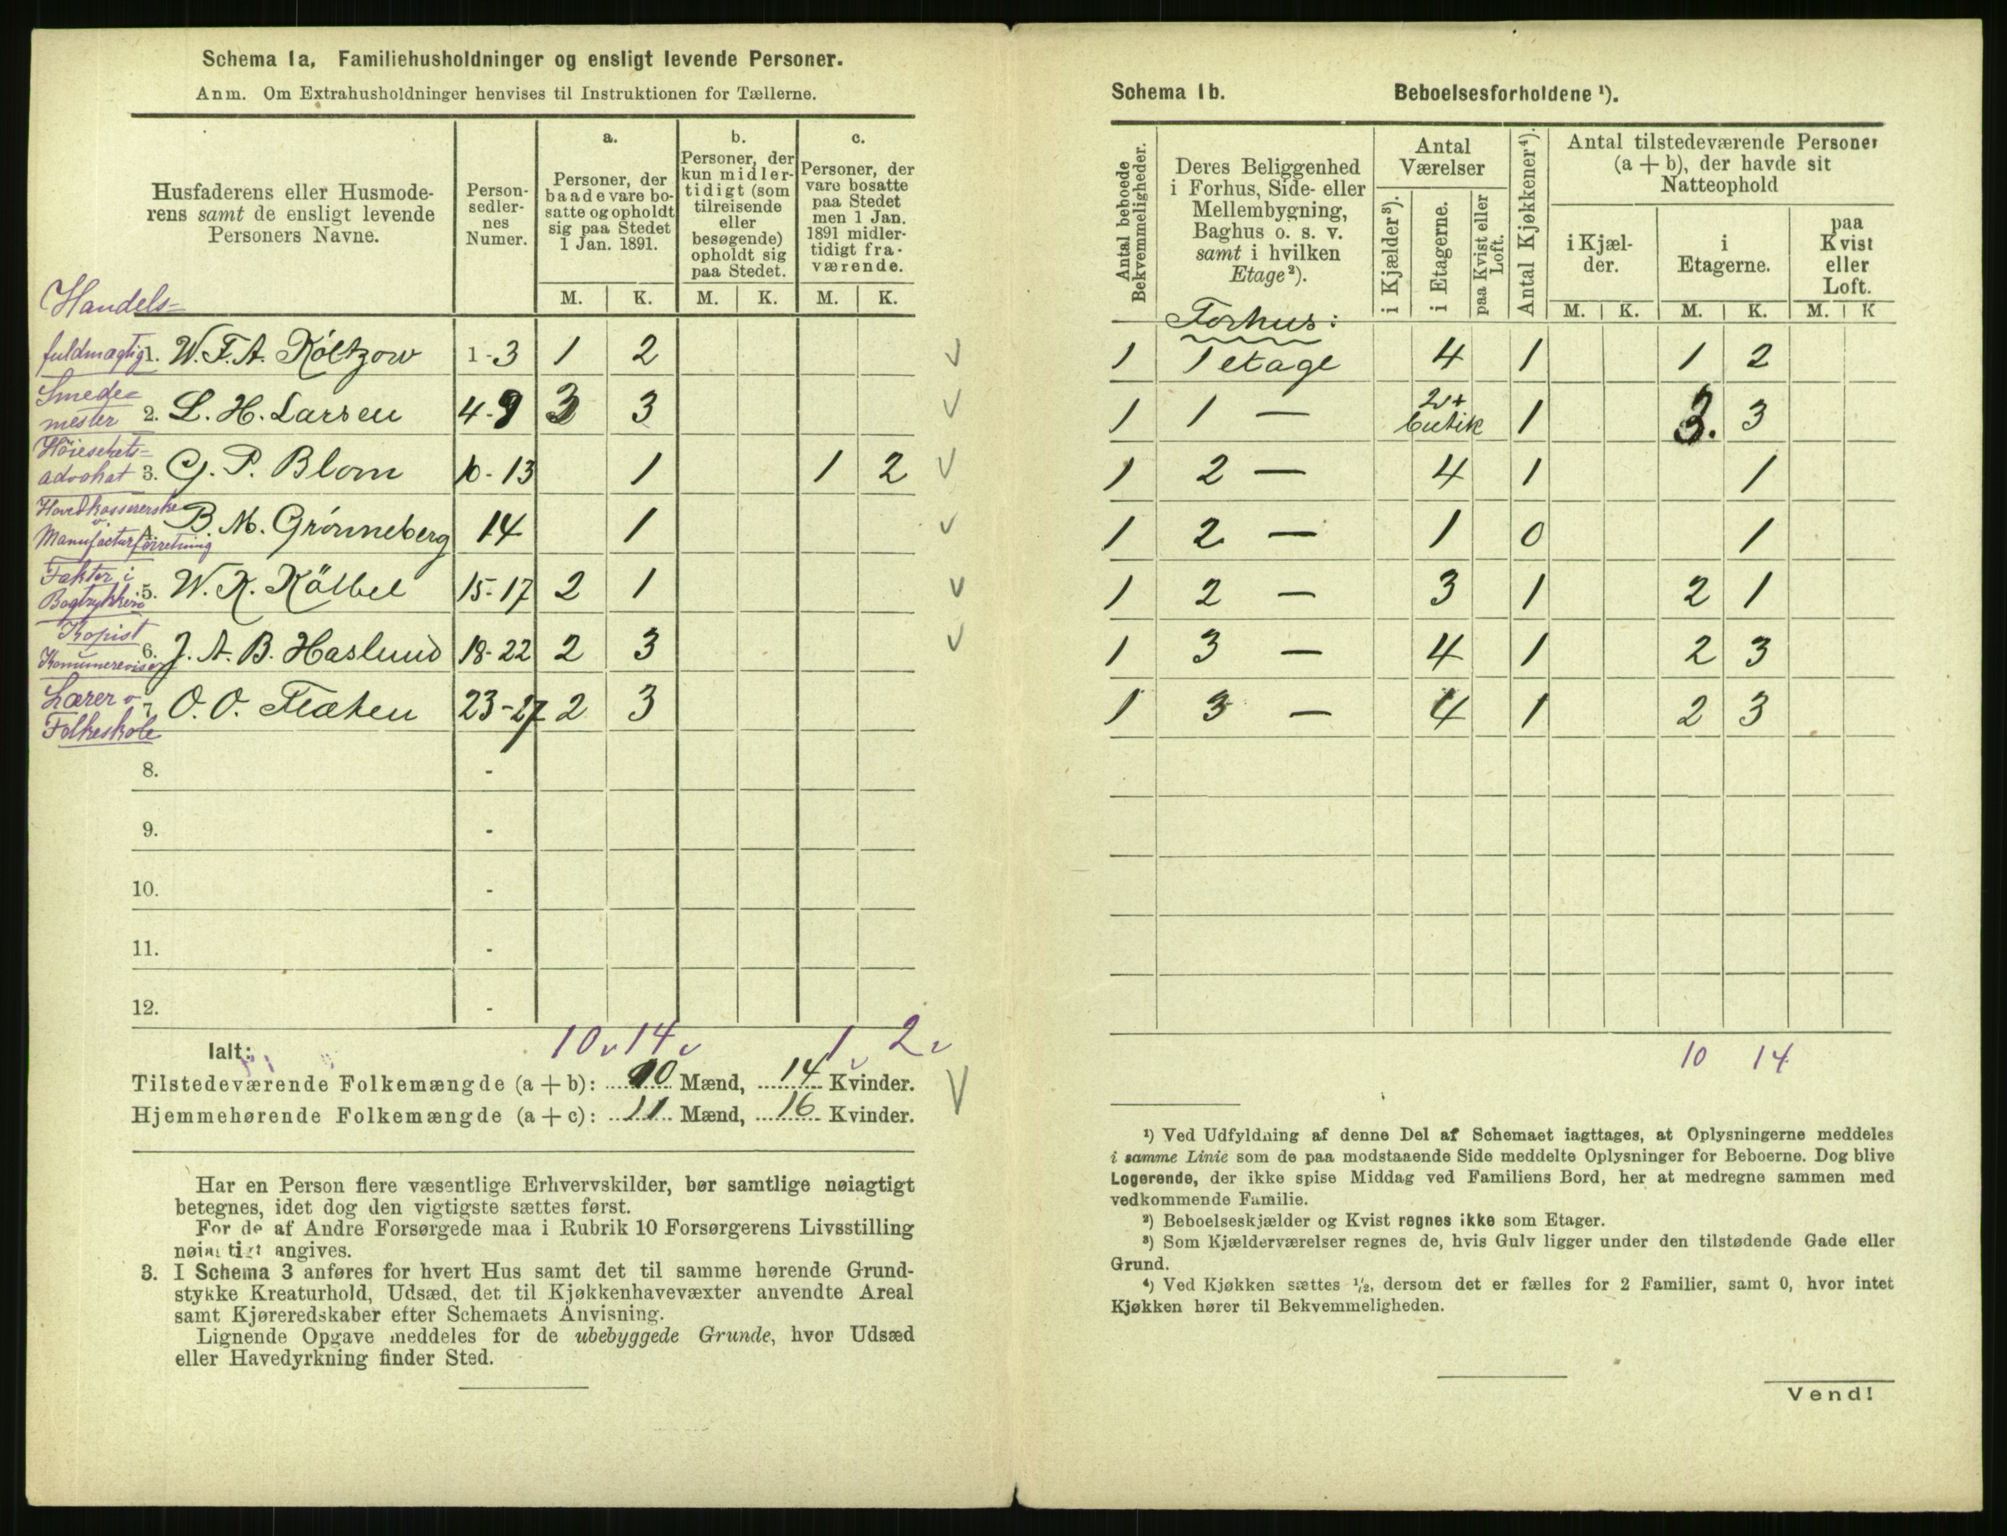 Schema 1a, Familiehusholdninger og ensligt levende Personer.
Anm. Om Extrahusholdninger henvises til Instruktionen for Tællerne.
Husfaderens eller Husmoderens samt de ensligt levende Personers Navne.
Personsedlernes Numer.
a. Personer, der baade vare bosatte og opholdt sig paa Stedet 1 Jan. 1891.
b. Personer, der kun midlertidigt (som tilreisende eller besøgende) opholdt sig paa Stedet.
c. Personer, der vare bosatte paa Stedet men 1 Jan. 1891 midlertidigt fraværende.
M. K. M. K. M. K.
Handels-
fuldmægtig 1. W. F. A. Költzow 1-3 1 2
Smede-
mester 2. L. H. Larsen 4-9 3 3
Høiesterets-
advokat 3. G. P. Blom 10-13 1 1 2
Hovedkassererske
v. Manufacturforretning 4. B. M. Grönneberg 14 1
Faktor i
Bogtrykkeri 5. W. K. Kölbel 15-17 2 1
Kopist
Komunerevision 6. J. A. B. Haslund 18-22 2 3
Lærer v.
Folkeskole 7. O. O. Flaten 23-27 2 3
8. -
9. -
10. -
11. -
12. -
Ialt: 10 14 1 2
Tilstedeværende Folkemængde (a + b): 10 Mænd, 14 Kvinder.
Hjemmehørende Folkemængde (a + c): 11 Mænd, 16 Kvinder.
Har en Person flere væsentlige Erhvervskilder, bør samtlige nøiagtigt
betegnes, idet dog den vigtigste sættes først.
For de af Andre Forsørgede maa i Rubrik 10 Forsørgerens Livsstilling
nøiagtigt angives.
3. I Schema 3 anføres for hvert Hus samt det til samme hørende Grund-
stykke Kreaturhold, Udsæd, det til Kjøkkenhavevæxter anvendte Areal
samt Kjøreredskaber efter Schemaets Anvisning.
Lignende Opgave meddeles for de ubebyggede Grunde, hvor Udsæd
eller Havedyrkning finder Sted.
Schema 1b. Beboelsesforholdene ¹).
Antal beboede Bekvemmeligheder.
Deres Beliggenhed i Forhus, Side- eller Mellembygning, Baghus o. s. v. samt i hvilken Etage²).
Antal Værelser
i Kjælder³).
i Etagerne.
paa Kvist eller Loft.
Antal Kjøkkener⁴).
Antal tilstedeværende Personer (a + b), der havde sit Natteophold
i Kjælder.
i Etagerne.
paa Kvist eller Loft.
M. K. M. K. M. K
Forhus:
1 1 etage 4 1 1 2
1 1 — 2 + butik 1 3. 3
1 2 — 4 1 1
1 2 — 1 0 1
1 2 — 3 1 2 1
1 3 — 4 1 2 3
1 3 — 4 1 2 3
10 14
¹) Ved Udfyldning af denne Del af Schemaet iagttages, at Oplysningerne meddeles
i samme Linie som de paa modstaaende Side meddelte Oplysninger for Beboerne. Dog blive
Logerende, der ikke spise Middag ved Familiens Bord, her at medregne sammen med
vedkommende Familie.
²) Beboelseskjælder og Kvist regnes ikke som Etager.
³) Som Kjælderværelser regnes de, hvis Gulv ligger under den tilstødende Gade eller
Grund.
⁴) Ved Kjøkken sættes ½, dersom det er fælles for 2 Familier, samt 0, hvor intet
Kjøkken hører til Bekvemmeligheden.
Vend!